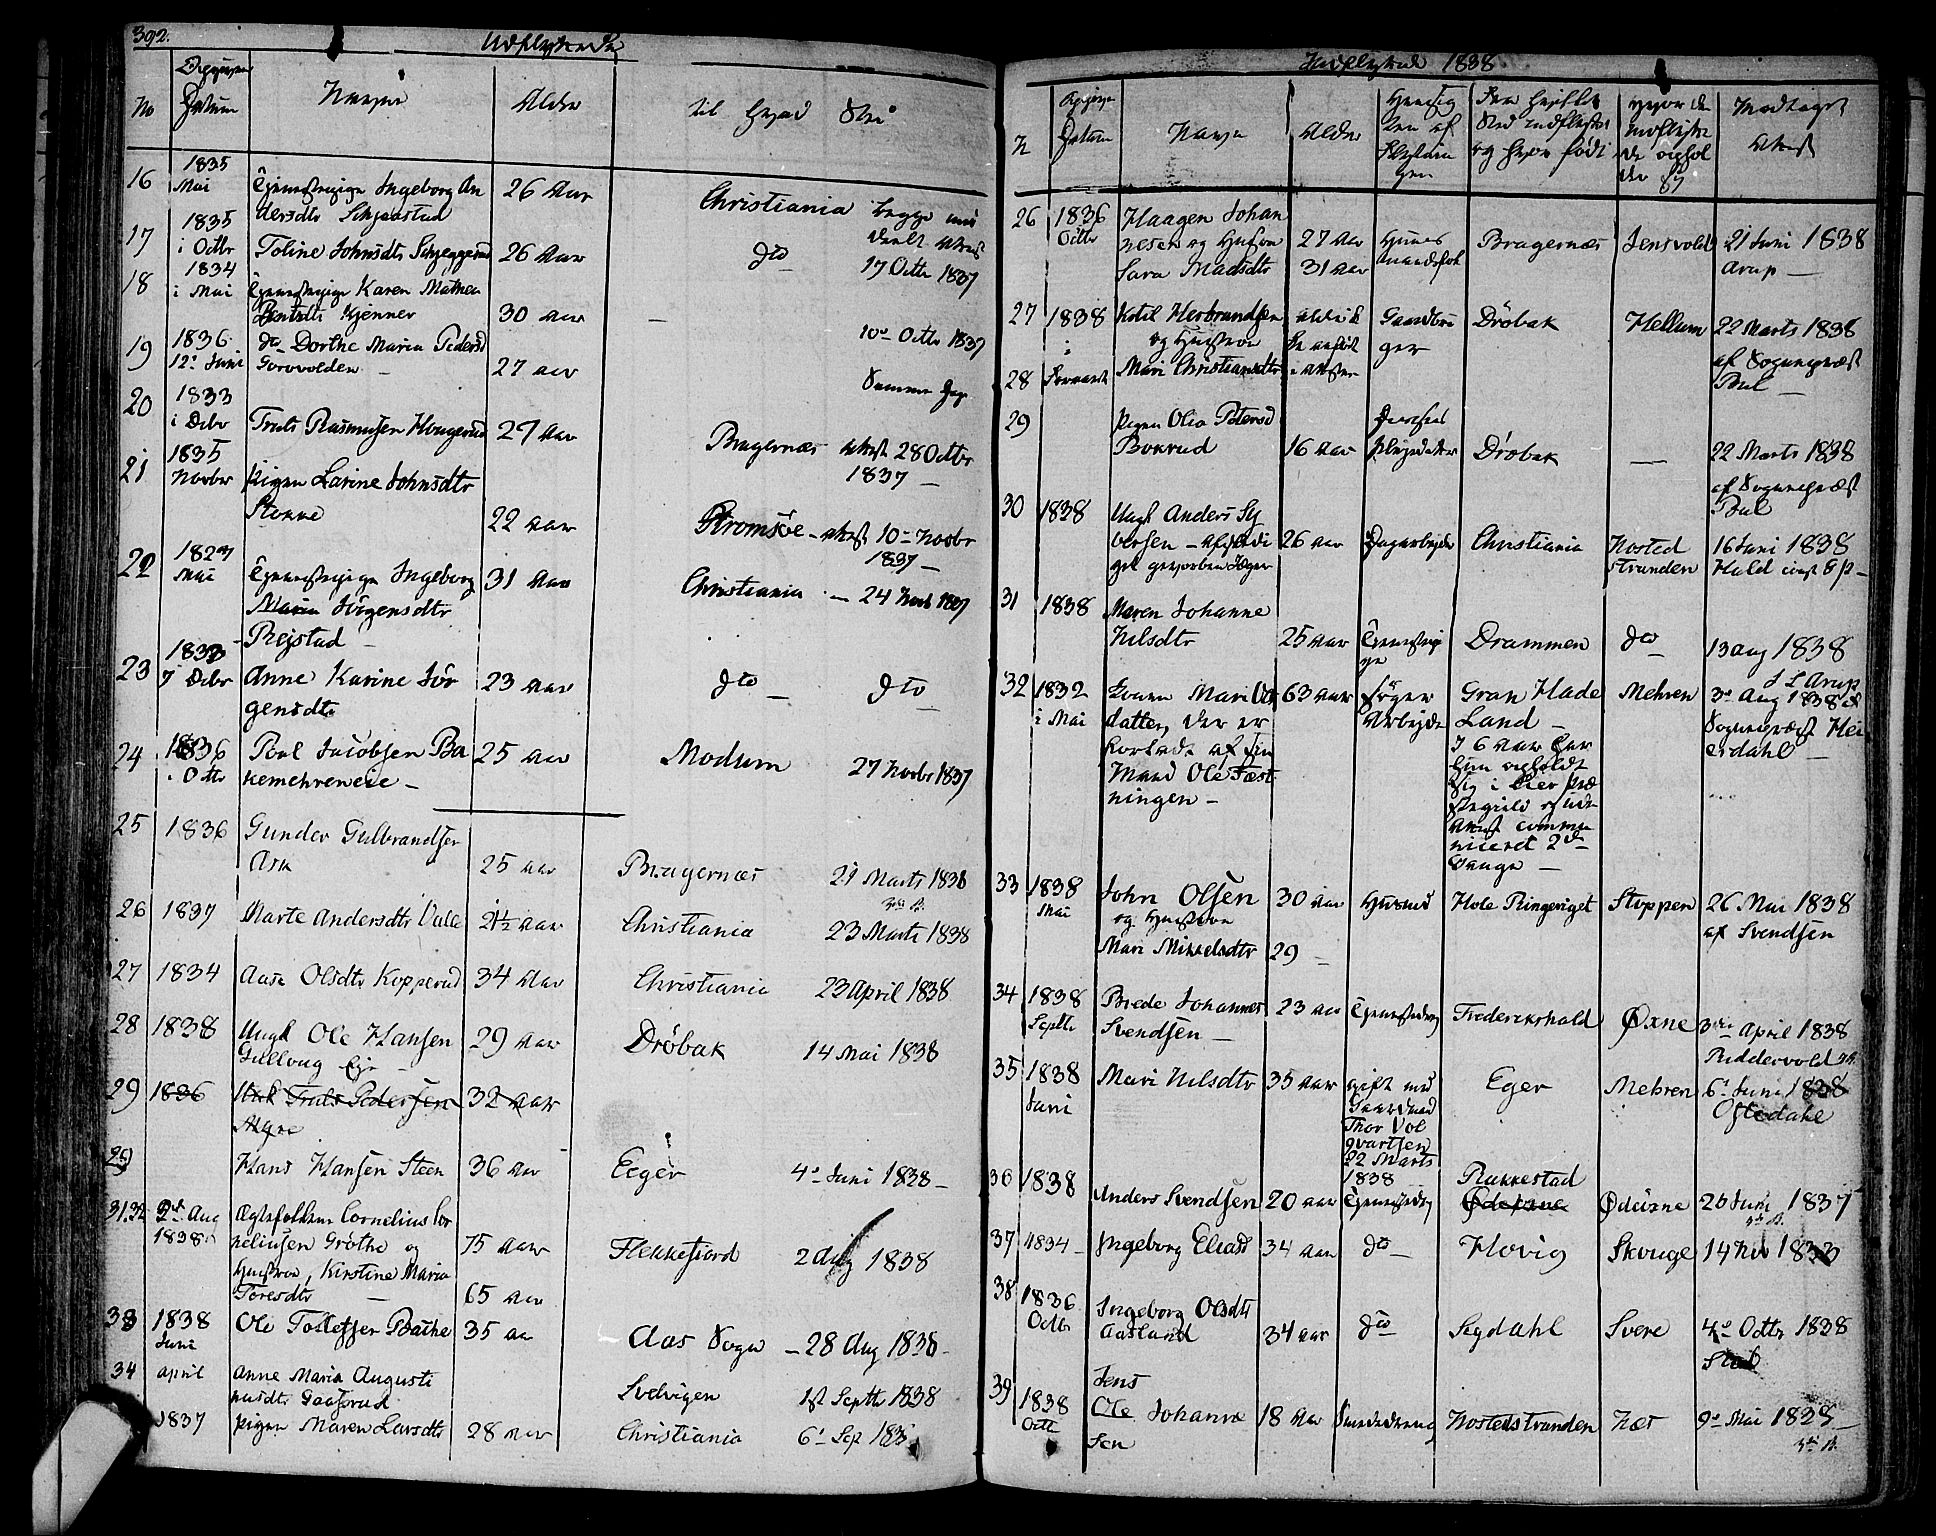 392.
Udflyttede
No
Datum
Navne
Alder
til hvad Sted
16
1835
Mai
Tjenestepige Ingeborg An
dersdtr
26 Aar
Christiania
begge med
deelt Attest
17 Octbr 1837
17
1835
i Octbr
Toline Johnsdtr
26 Aar
dto
18
1834
i Mai
Tjenestepige Karen Mathea
Kjenner
30 aar
—
10de Octbr 1837
19
1836
12te Juni
dto Dorthe Maria Pedersd
27 aar
Samme Dag
20
1833
i Debr
Truls Rasmusen Haugerud
27 Aar
Bragernæs Attest 28 Octbr
1837 —
21
1835
Novbr
Pigen Larine Johnsdtr
Stokke
22 aar
Strømsøe – Attest 10de Novbr
1837 —
22
1827
Mai
Tjenestepige Ingeborg
Maria Jörgensdtr
Rejstad —
31 Aar
Christiania — 24 Novb 1837
23
1833
7 Debr
Anne Karine Jör
gensdtr
23 aar
dto
dto
24
1836
i Octbr
Poul Jacobsen Ba
kemehreneie —
25 aar
Modum
27 Novbr 1837
25
1836
Gunder Gulbrandsen
Ask
25 aar
Bragernæs
21 Marts 1838
26
1837
Marte Andersdtr Valle
21½ aar
Christiania
23 Marts 1838
27
1834
Aase Olsdtr Kopperud
34 Aar
Christiania
23 April 1838
28
1838
Ungk Ole Hansen
Gulloug Eje
29 aar
Drøbak
14 Mai 1838
29
1836
Unk Truls Pedersen
32 aar
29
Hans Hansen Steen
36 aar
Eeger
4de Juni 1838 —
31.32
2den Aug
1838
Ægtefolkene Cornelius Cor
neliusen Gröthe og
Hustroe, Kirstine Maria
Toresdtr
75 aar
65 aar
Flekkefjord
2 Aug 1838
33
1838
Juni
Ole Tollefsen Bache
35 aar
Aas Sogn — 28 Aug 1838
34
April
Anne Maria Augusti
nusdtr Gaasrud
Svelvigen
1st Septbr 1838
1837
Pigen Maren Larsdtr
28 aar
Christiania
6te Sep 183
Indflyttede 1838
N
Datum
Navne
Alder
Fra hvilket
Sted Indflyttet
og hvor född
Hvor de
indflytte
de ophol
der sig
Modtaget
Attest
26
1836
Octbr
Haagen Johan
nesen og Hustroe
Sara Madsdtr
27 Aar
31 Aar
Huus
mandsfolk
Bragernæs
Jensvold
21 Juni 1838
Arup —
27
1838
i
Ketil Herbrandsen
og Hustroe
Gaardbru
ger
Drøbak
Hellum
22 Marts 1838
af Sognepræst
Bul
28
Mari Christiansdtr
29
Pigen Olia Petersd
Borrud
16 Aar
Plejedatter
Drøbak
—
22 Marts 1838
af Sognepræst
Bul
30
1838
Ungk Anders Sy
versen – afskedi
get geworben Jæger
26 aar
Dagarbejder
Christiania
Nosted
stranden
16 Juni 1838
Hald const Sp –
31
1838
Maren Johanne
Nilsdtr
25 aar
Tjenestepi
ge
Drammen
dto
13 Aug 1838
J L Arup
32
1832
i Mai
Konen Mari Ols
datter, der er
forladt af sin
Mand Ole Fæst
ningen —
63 aar
søger
Arbejde
Gran Hade
Land —
I 6 aar har
hun opholdt
sig i Lier Præ
stegield og uden
Attest commu
niceret 2de
Gange —
Mehren
3de Aug 1838 af
Sognepræst Hei
erdahl —
33
1838
Mai
John Olsen
og Hustroe
Mari Mikkelsdtr
30 aar
29 —
Huusmd
Hole Ringeriget
Stoppen
26 Mai 1838
af Svendsen
34
1838
Septbr
Brede Johannes
Svendsen —
23 aar
Tjenestedreng
Frederikshald
Øxne
3die April 1838
Riddervold
35
1838
Juni
Mari Nilsdtr
35 aar
gift med
Gaardmd
Thor Vol
qvartsen
22 Marts
1838 —
Eger
Mehren
6te Juni 1838
Oftedahl
36
1838
Anders Svendsen
20 aar
Tjenestedreng
Rakkestad
Ødeøxne
20 Juni 1837
37
1834 —
Ingeborg Elsdtr
34 aar
dto
Hovig
Skouge
14 Nov 1833
38
1836
Octbr
Ingeborg Olsdtr
Aasland
34 aar
dto
Segdahl
Svere
4de Octbr 1838
39
1838
Octb
Jens
Ole Johanne
sen
18 Aar
Smededreng
Nostedstranden
Næs
9de Mai 1838 —